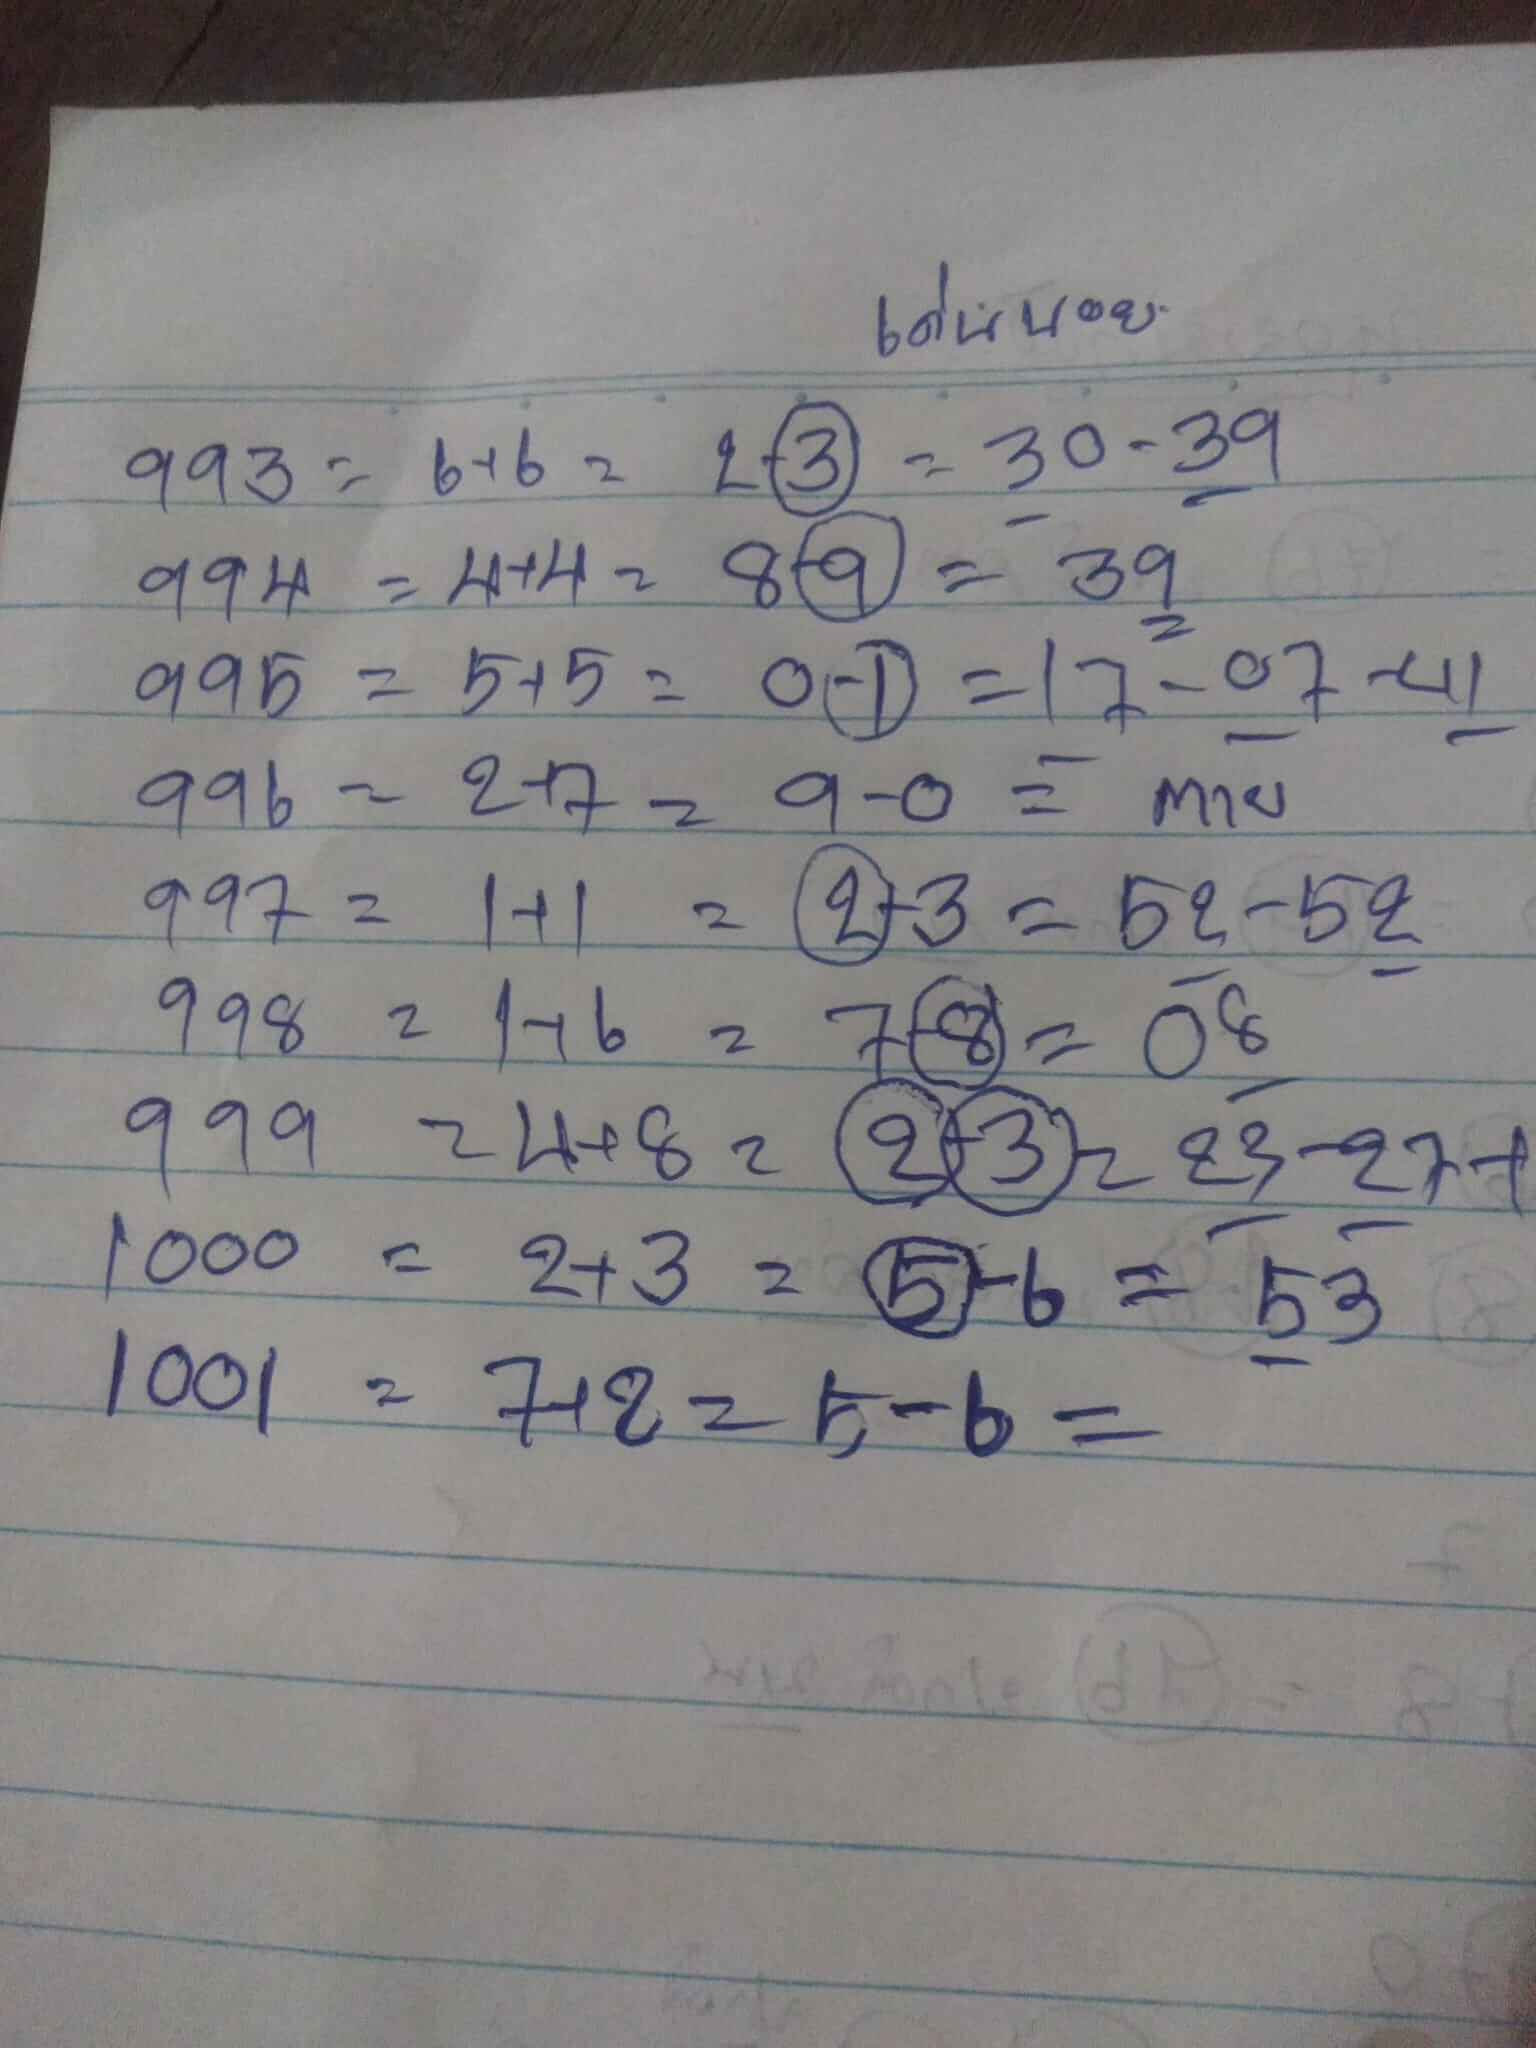 เด่นนอย
993 = 6+6 = 2+3 = 30-39
994 = 4+4 = 8+9 = 39
995 = 5+5 = 0-1 = 17-07-41
996 = 2+7 = 9-0 = ตาย
997 = 1+1 = 2+3 = 52-52
998 = 1+6 = 7+8 = 08
999 = 4+8 = 2+3 = 23-27-1
1000 = 2+3 = 5-6 = 53
1001 = 7+2 = 5-6 =